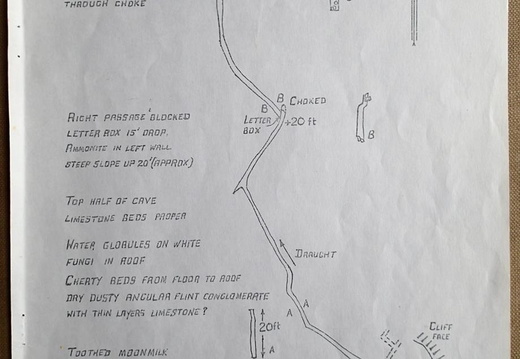 THROUGH CHOKE
B
B CHOKED
LETTER BOX
+20 ft
B
RIGHT PASSAGE BLOCKED
LETTER BOX 15' DROP.
AMMONITE IN LEFT WALL
STEEP SLOPE UP 20' (APPROX)
TOP HALF OF CAVE
LIMESTONE BEDS PROPER
WATER GLOBULES ON WHITE
FUNGI IN ROOF
DRAUGHT
CHERTY BEDS FROM FLOOR TO ROOF
DRY DUSTY ANGULAR FLINT CONGLOMERATE
WITH THIN LAYERS LIMESTONE?
A
A
20ft
A
CLIFF
FACE
TOOTHED MOONMILK